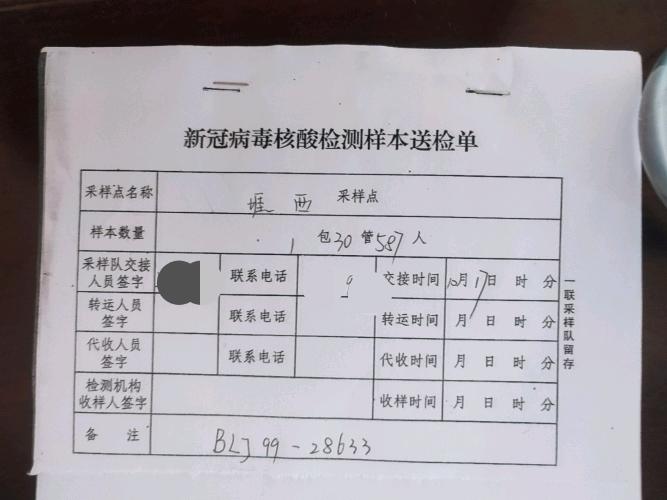 新冠病毒核酸检测样本送检单
采样点名称 堐西 采样点
样本数量 1 包 30 管 587 人
采样队交接人员签字 联系电话 9 交接时间 10月17日 时 分
转运人员签字 联系电话 转运时间 月 日 时 分
代收人员签字 联系电话 代收时间 月 日 时 分
检测机构收样人签字 收样时间 月 日 时 分
备 注 BLJ99-28633
一联采样队留存